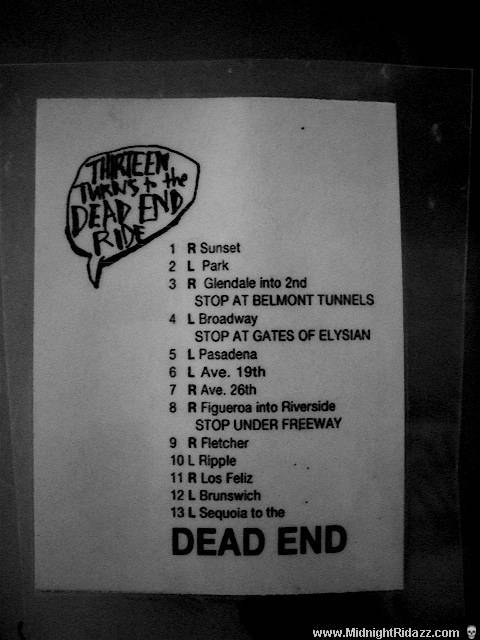 THIRTEEN
TURNS to the
DEAD END
RIDE
1 R Sunset
2 L Park
3 R Glendale into 2nd
STOP AT BELMONT TUNNELS
4 L Broadway
STOP AT GATES OF ELYSIAN
5 L Pasadena
6 L Ave. 19th
7 R Ave. 26th
8 R Figueroa into Riverside
STOP UNDER FREEWAY
9 R Fletcher
10 L Ripple
11 R Los Feliz
12 L Brunswich
13 L Sequoia to the
DEAD END
www.MidnightRidazz.com